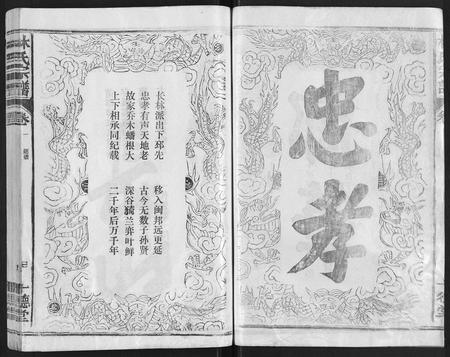 忠孝
长林派出下邳先 移入闽邦远更延
忠孝有声天地老 古今无数子孙贤
故家乔木蟠根大 深谷猗兰弈叶鲜
上下相承同纪载 二千年后万千年
林氏宗谱
卷一
德堂